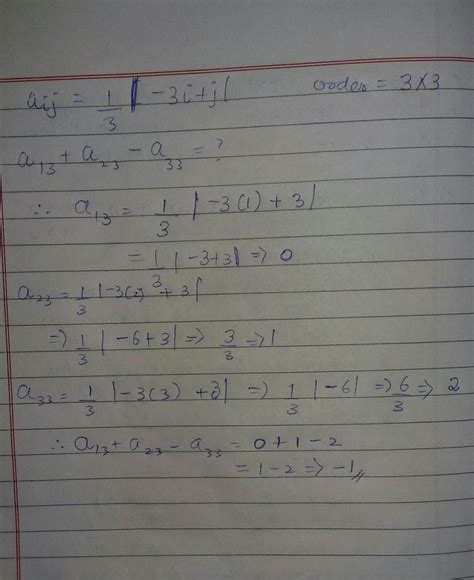 aij = 1/3 |-3i+j| order = 3×3
a₁₃ + a₂₃ - a₃₃ = ?
∴ a₁₃ = 1/3 |-3(1) + 3|
= 1/3 |-3+3| => 0
a₂₃ = 1/3 |-3(2) + 3|
=> 1/3 |-6+3| => 3/3 => 1
a₃₃ = 1/3 |-3(3) + 3| => 1/3 |-6| => 6/3 => 2
∴ a₁₃ + a₂₃ - a₃₃ = 0 + 1 - 2
= 1 - 2 => -1//